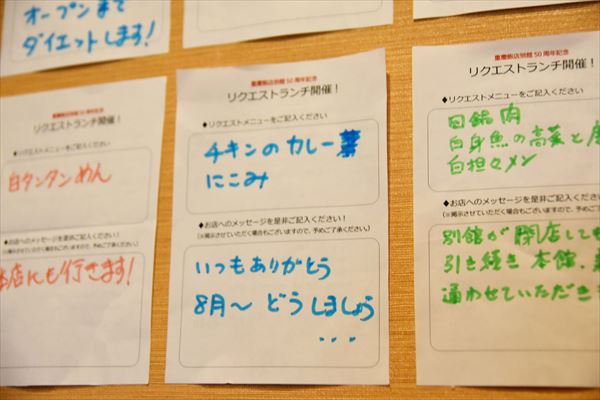 オープンまで
ダイエットします!
重慶飯店別館50周年記念
リクエストランチ開催!
◆リクエストメニューをご記入ください
白タンタンめん
◆お店へのメッセージを是非ご記入ください!
(※掲示させていただく場合もございますので、予めご了承ください)
店にも行きます!
重慶飯店別館50周年記念
リクエストランチ開催!
◆リクエストメニューをご記入ください
チキンのカレー
にこみ
◆お店へのメッセージを是非ご記入ください!
(※掲示させていただく場合もございますので、予めご了承ください)
いつもありがとう
8月〜 どうしましょう
...
重慶飯店別館50周年記念
リクエストランチ開催!
◆リクエストメニューをご記入ください
回鍋肉
白身魚の高菜と
白担々メン
◆お店へのメッセージを是非ご記入ください!
(※掲示させていただく場合もございますので、予めご了承
別館が閉店しても
引き続き本館、
通わせていただき